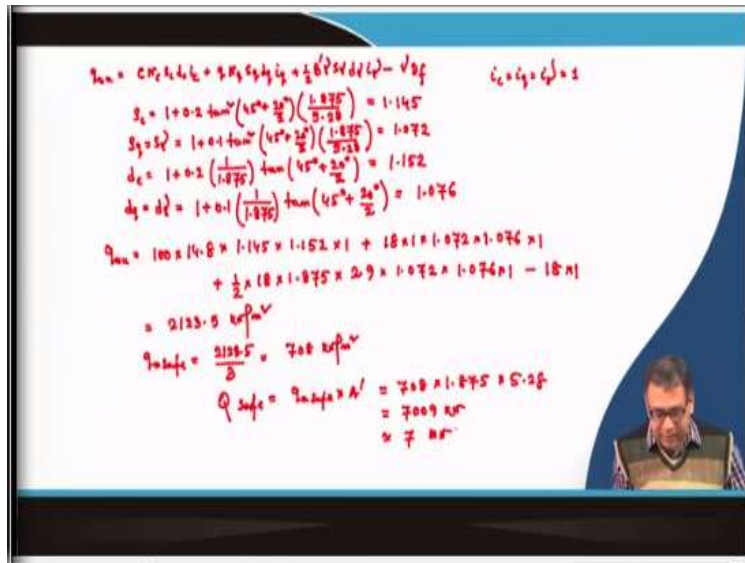 qnu = c Nc sc dc ic + q Nq sq dq iq + ½ B'γ sγ dγ iγ - γ Df    ic = iq = iγ = 1
sc = 1+0.2 tan² (45°+ 20°/2) (1.875/5.28) = 1.145
sq = sγ = 1+0.1 tan² (45°+ 20°/2) (1.875/5.28) = 1.072
dc = 1+0.2 (1/1.875) tan (45°+ 20°/2) = 1.152
dq = dγ = 1+0.1 (1/1.875) tan (45°+ 20°/2) = 1.076
qnu = 100 x 14.8 x 1.145 x 1.152 x 1 + 18 x 1 x 1.072 x 1.076 x 1
+ ½ x 18 x 1.875 x 2.9 x 1.072 x 1.076 x 1 - 18 x 1
= 2123.5 kN/m²
qnsafe = 2123.5/3 = 708 kN/m²
Q safe = qnsafe x A' = 708 x 1.875 x 5.28
= 7009 kN
≈ 7